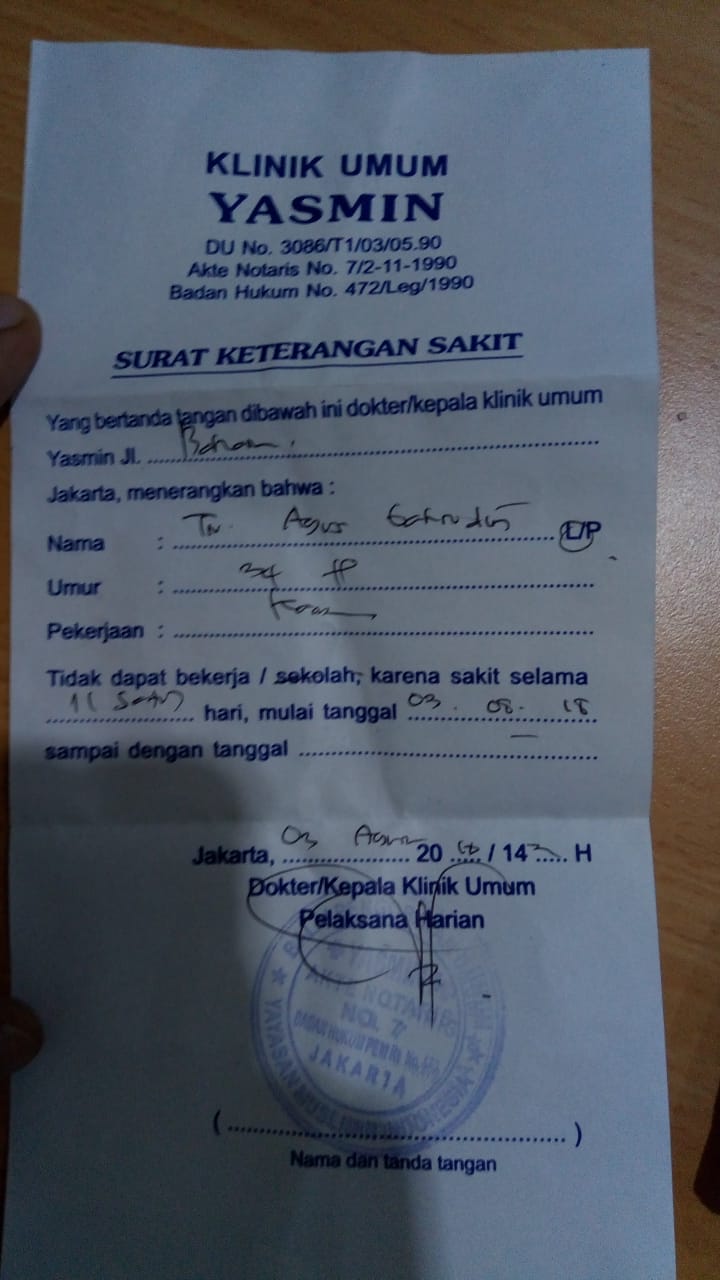 KLINIK UMUM
YASMIN
DU No. 3086/T1/03/05.90
Akte Notaris No. 7/2-11-1990
Badan Hukum No. 472/Leg/1990
SURAT KETERANGAN SAKIT
Yang bertanda tangan dibawah ini dokter/kepala klinik umum
Yasmin Jl. ..........
Jakarta, menerangkan bahwa :
Nama : Tn. Agus L/P
Umur : 34
Pekerjaan : ..........
Tidak dapat bekerja / sekolah, karena sakit selama
1 ( Satu) hari, mulai tanggal 03. 08. 18
sampai dengan tanggal ..........
Jakarta, 03 20 / 14 H
Dokter/Kepala Klinik Umum
Pelaksana Harian
AKTE NOTARIS
NO. 7
JAKARTA
YAYASAN MUSLIM INDONESIA
(..........)
Nama dan tanda tangan